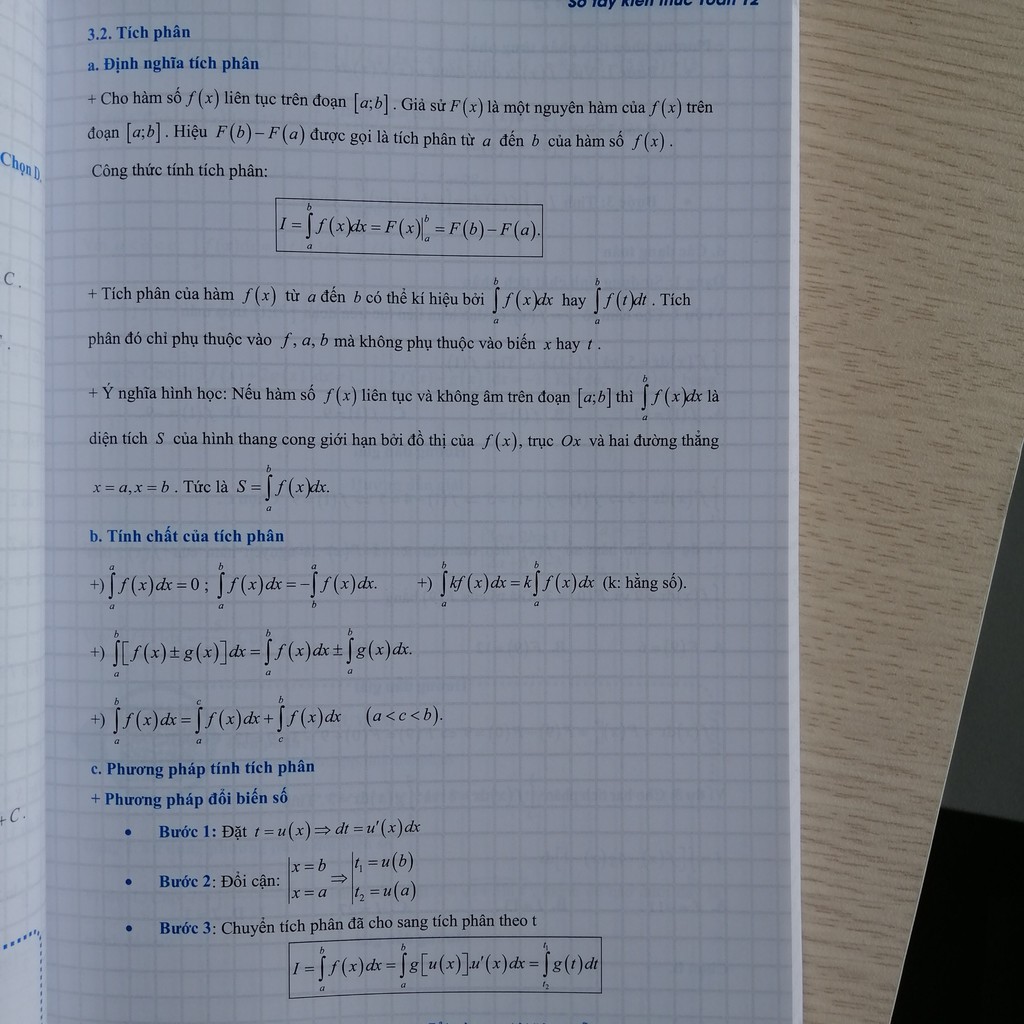 Sổ tay kiến thức Toán 12
3.2. Tích phân
a. Định nghĩa tích phân
+ Cho hàm số f(x) liên tục trên đoạn [a;b]. Giả sử F(x) là một nguyên hàm của f(x) trên
đoạn [a;b]. Hiệu F(b)−F(a) được gọi là tích phân từ a đến b của hàm số f(x).
Chọn D.
Công thức tính tích phân:
I = ∫_a^b f(x)dx = F(x)|_a^b = F(b)−F(a).
C.
+ Tích phân của hàm f(x) từ a đến b có thể kí hiệu bởi ∫_a^b f(x)dx hay ∫_a^b f(t)dt. Tích
phân đó chỉ phụ thuộc vào f, a, b mà không phụ thuộc vào biến x hay t.
+ Ý nghĩa hình học: Nếu hàm số f(x) liên tục và không âm trên đoạn [a;b] thì ∫_a^b f(x)dx là
diện tích S của hình thang cong giới hạn bởi đồ thị của f(x), trục Ox và hai đường thẳng
x = a, x = b. Tức là S = ∫_a^b f(x)dx.
b. Tính chất của tích phân
+) ∫_a^a f(x)dx = 0 ; ∫_a^b f(x)dx = −∫_b^a f(x)dx. +) ∫_a^b kf(x)dx = k∫_a^b f(x)dx (k: hằng số).
+) ∫_a^b [f(x) ± g(x)]dx = ∫_a^b f(x)dx ± ∫_a^b g(x)dx.
+) ∫_a^b f(x)dx = ∫_a^c f(x)dx + ∫_c^b f(x)dx (a < c < b).
c. Phương pháp tính tích phân
+ Phương pháp đổi biến số
+ C.
• Bước 1: Đặt t = u(x) ⇒ dt = u'(x)dx
• Bước 2: Đổi cận: |x = b ⇒ |t₁ = u(b)
|x = a |t₂ = u(a)
• Bước 3: Chuyển tích phân đã cho sang tích phân theo t
I = ∫_a^b f(x)dx = ∫_a^b g[u(x)].u'(x)dx = ∫_{t₂}^{t₁} g(t)dt